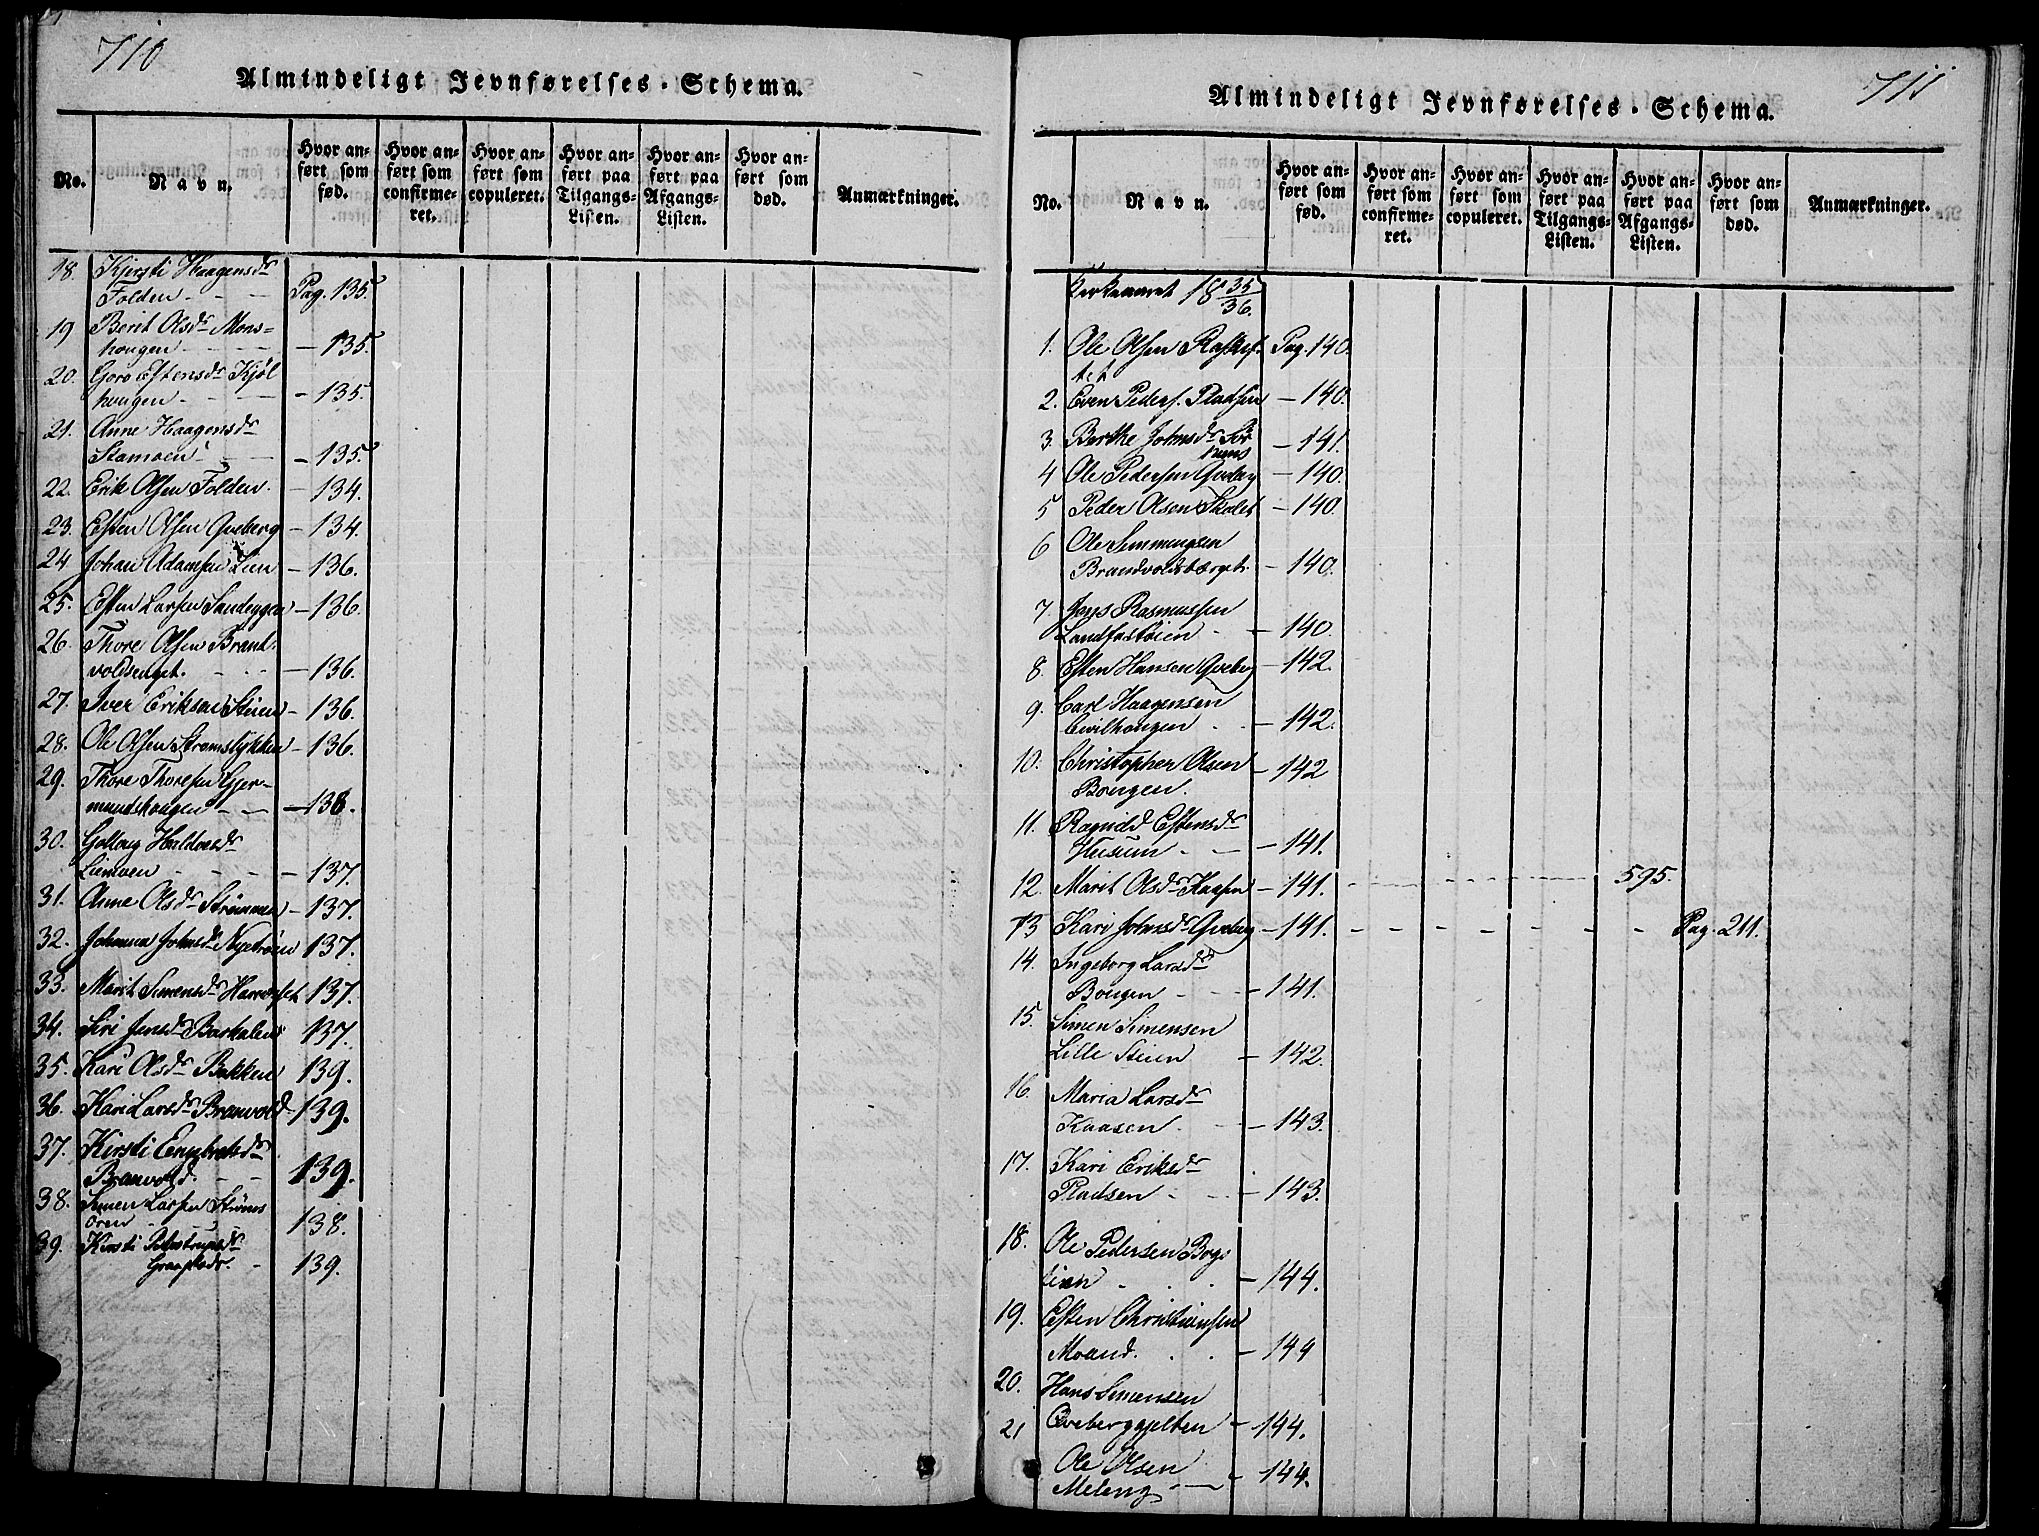 710
Almindeligt Jevnførelses-Schema.
No.
Navn.
Hvor an-
ført som
fød.
Hvor an-
ført som
confirme-
ret.
Hvor an-
ført som
copuleret.
Hvor an-
ført paa
Tilgangs-
Listen.
Hvor an-
ført paa
Afgangs-
Listen.
Hvor an-
ført som
død.
Anmærkninger.
18. Kjersti Haagensdr
Folden - - - Pag. 135.
19 Berit Olsdr Mons-
hougen - - - 135.
20. Goro Estensdr Kjøl
hougen - - - 135.
21. Anne Haagensdr
Stamoen - - 135.
22. Erik Olsen Folden. - 134.
23. Esten Olsen Qveberg - 134.
24 Johan Adamsen Lien - 136.
25. Esten Larsen Sandeggen - 136.
26. Thore Olsen Brant-
voldsenget. - - - 136.
27. Iver Eriksen Steien - 136.
28. Ole Olsen Strømstykken - 136.
29. Thore Thoresen Gjer-
mundshougen - - 138.
30. Golloug Haldorsdr
Liemoen - - - - 137.
31. Anne Olsdr Strømmen - 137.
32. Johanna Johnsdr Nyetrøen 137.
33. Marit Simensdr Harreset 137.
34. Siri Jensdr Barkalien 137.
35. Kari Olsdr Bakken 139.
36. Kari Larsdr Branvold - 139.
37. Kirsti Engebretsdr
Branvold. - - 139.
38. Simen Larsen Strøms
øren - - 138.
39. Kirsti
139.
711
Almindeligt Jevnførelses-Schema.
No.
Navn.
Hvor an-
ført som
fød.
Hvor an-
ført som
confirme-
ret.
Hvor an-
ført som
copuleret.
Hvor an-
ført paa
Tilgangs-
Listen.
Hvor an-
ført paa
Afgangs-
Listen.
Hvor an-
ført som
død.
Anmærkninger.
Kirkeaaret 18 35/36.
1. Ole Olsen Pag. 140.
2. Even Peders. Pladsen - 140.
3. Berthe Johnsdr Sør
huus - 141.
4 Ole Pedersen Qveberg - 140.
5 Peder Olsen - 140.
6 Ole Simmengsen
Brandvoldsberget. - 140.
7. Jens Rasmussen
Landfastøien - - 140.
8. Esten Hansen Qveberg - 142.
9. Carl Haagensen
- - 142.
10. Christopher Olsen - 142
Bougen.
11. Ragnild Estensdr
Husum - - 141.
12. Marit Olsdr Kaasen - 141. - - - - - 595.
13 Kari Johnsdr Qveberg - 141. - - - - - - - Pag. 211.
14. Ingeborg Larsdr
Bougen - - 141.
15. Simen Simensen
Lille Steien - 142.
16. Maria Larsdr
Kaasen. - - 143.
17. Kari Eriksdr
Pladsen - - 143.
18. Ole Pedersen
- 144.
19. Esten Christiansen
Moand. . . - 144
20. Hans Simensen
Qveberggjelten - 144.
21 Ole Olsen
Meleng - - 144.